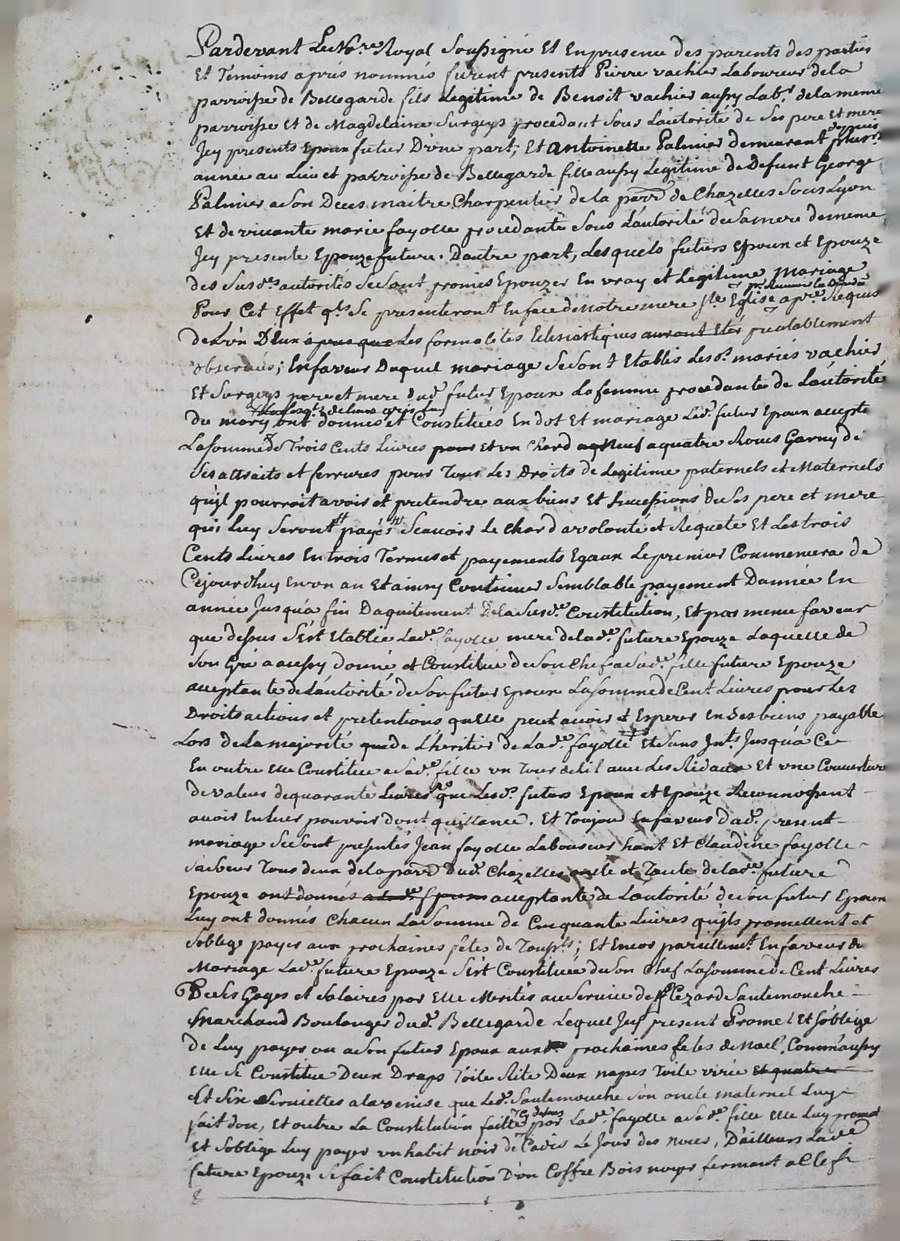 Pardevant Le No.re Royal Soussigné Et En presence des parents des parties
Et Temoins aprés nommés furent presents Pierre vachier Laboureur de la
parroisse de Bellegarde fils Legitime de Benoit vachier aussy Lab.r de la meme
parroisse Et de Magdelaine Surgeys procedant Sous L'autorité de Ses pere et mere
Icy presents Epoux futur D'vne part, Et antoinette Palmier demeurant depuis plus.rs
année au Lieu et parroisse de Bellegarde fille aussy Legitime de Defunt George
Palmier a Son Deces maitre Charpentier de la parr. de Chazelles Sous Lyon
Et de vivante marie fayolle procedante Sous L'autorité de Sa mere de meme
Icy presente Epouze future. Dautre part, Lesquels futurs Epoux et Epouze
des Susd.es autorités Se Sont promis Epouzer En vray et Legitime Mariage
Pour Cet Effet q.ls Se presenteront En face de Notre mere S.te Eglise apr. Requis
de L'vn D'eux Les formalités Eclesiastiques prealablement
observées; En faveur Duquel mariage Se Sont Etablis Les d. mariés vachier
Et Surgeys pere et mere dud. futur Epoux La femme procedante de L'autorité
du mary ont donnés et Constitués En dot Et mariage Led. futur Epoux accepte
La Somme de Trois Cents Livres Et vn Chard a quatre Roues Garny de
Ses attraits et ferrures pour Tous Les Droits de Legitime paternels et Maternels
qu'jl pourroit avoir et pretendre aux biens Et Successions de Ses pere et mere
qui Luy Seront payés Scauoir Le Chard a volonté et Requete Et Les trois
Cents Livres En trois Termes et payements Egaux Le premier Commencera de
Cejourdhuy En vn an Et ainsy Continuer Semblable payement Dannée En
année Jusqu'a fin Daquitement De la Susd.e Constitution, Et par meme faveur
que dessus S'est Etablie Lad.e fayolle mere de lad.e future Epouze Laquelle de
Son Gré a aussy donné et Constitué de Son Chef a Sad.e fille future Epouze
acceptante de L'autorité de Son futur Epoux La Somme de Cent Livres pour Les
Droits actions et pretentions qu'elle peut auoir et Esperer En Ses biens payable
Lors de La majorité de L'heritier de Lad.e fayolle Et Sans Int.ts Jusqu'a Ce
En outre Elle Constitue a Sad.e fille vn Tour de Lit avec Les Rideaux Et vne Couverture
de valeur de quarante Livres que Les d. futurs Epoux et Epouze Reconnoissent
auoir En Leur pouvoir dont quittance. Et Toujour En faveur Dud. present
mariage Se Sont presentés Jean fayolle Laboureur hant Et Claudine fayolle
Sa Soeur Tous deux de la parr. Dud. Chazelles oncle et Tante de lad.e future
Epouze ont donnés acceptante de L'autorité de Son futur Epoux
Luy ont donnés Chacun La Somme de Cinquante Livres qu'jls promettent et
S'oblige payer aux prochaines fetes de Touss.ts; Et Encor pareillem.t En faveur du
Mariage Lad.e future Epouze S'est Constituée de Son Chef La Somme de Cent Livres
De Ses Gages et Salaires par Elle Merités au Service de Sautemouche
Marchand Boulanger dud. Bellegarde Lequel Icy present Promet Et S'oblige
de Luy payer ou a Son futur Epoux aux prochaines fetes de Noel, Comm'aussy
Elle Se Constitue Deux Draps Toile Rite Deux napes Toile
Et Six Serviettes a la venise que Led. Sautemouche Son oncle maternel Luy
fait don, Et outre La Constitution faitte Cy dessus par Lad.e fayolle a Sad.e fille Elle Luy promet
Et S'oblige Luy payer vn habit noir de Cadis Le Jour des noces, D'ailleurs Lad.e
future Epouze Se fait Constitution D'vn Coffre Bois noyer fermant a Clefs